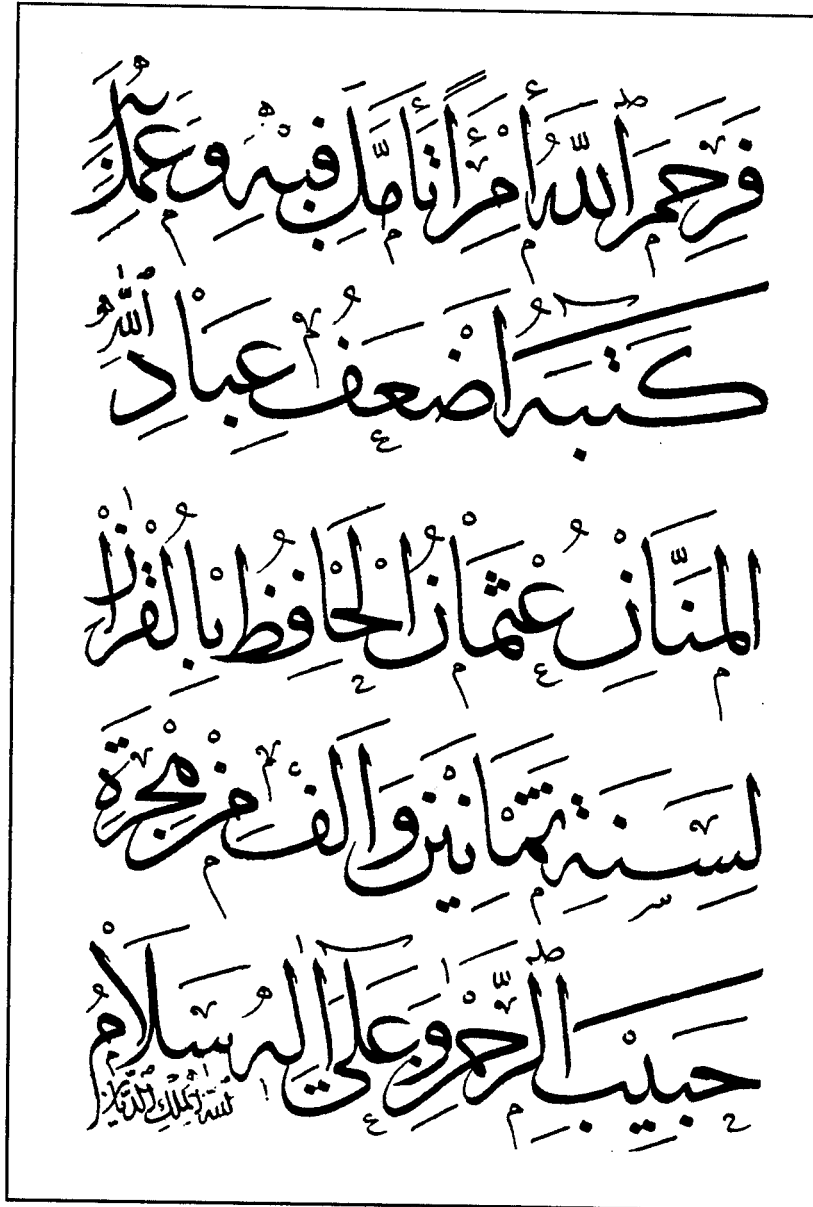 فَرَحِمَ اللّٰهُ أمْرَأً تَأَمَّلَ فِيْهِ وَعَمِلَ بِهِ
كَتَبَهُ اَضْعَفُ عِبَادِ اللّٰهِ
الْمَنَّانِ عُثْمَانُ الْحَافِظُ بِالْقُرْاٰنِ
لِسَنَةِ ثَمَانِيْنَ وَاَلْفٍ مِنْ هِجْرَةِ
حَبِيْبِ الرَّحْمٰنِ وَعَلٰى آلِهِ سَلَامُ
اللّٰهِ الْمَلِكِ الدَّيَّانِ